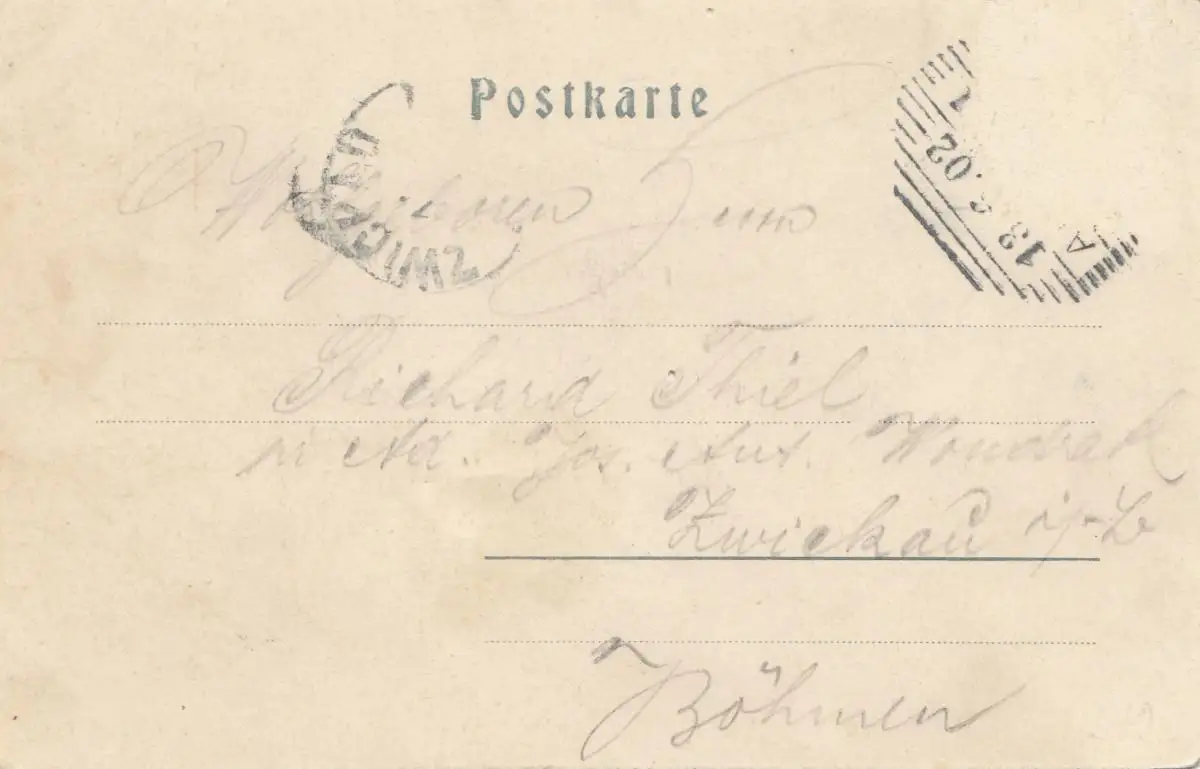 Postkarte
ZWICKAU
13 02
A
Wohlgeboren Herrn
Richard Thiel
in Fa. Jos. Ant. Wondrak
Zwickau i/B
Böhmen